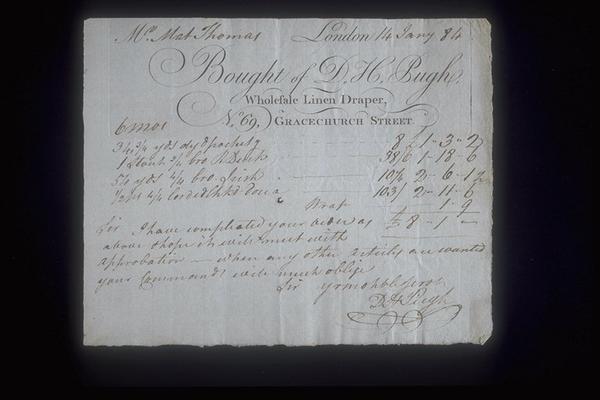 Mr. Mat Thomas London 14 Jany 84
Bought of D. H. Pugh,
Wholesale Linen Draper,
No. 69, GRACECHURCH STREET.
6 mos
3¾ yds dy'd 8 1 - 3 - 2
1 ¾ bro. 38/6 1 - 18 - 6
5½ yds 4/4 bro. Irish 2 - 6 - 1½
4/4 Corded 103/ 2 - 11 - 6
1 - 9
£ 8 - 1 -
Sir I have completed your order as
above & hope it will meet with
approbation — when any other articles are wanted
your Commands will much oblige
Sir yr most
D H Pugh